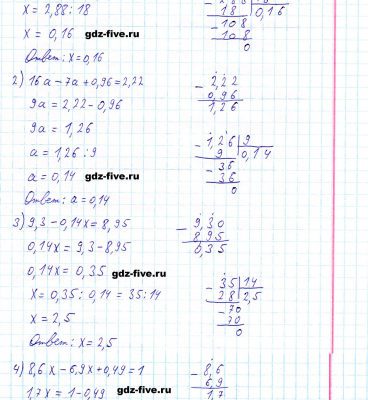 x = 2,88 : 18
18 0,16
x = 0,16 gdz-five.ru
108
108
0
Ответ: x = 0,16
2) 16a - 7a + 0,96 = 2,22
- 2,22
0,96
1,26
9a = 2,22 - 0,96
9a = 1,26
a = 1,26 : 9
- 1,26 | 9
9 0,14
- 36
36
0
a = 0,14 gdz-five.ru
Ответ: a = 0,14
3) 9,3 - 0,14x = 8,95
- 9,30
8,95
0,35
0,14x = 9,3 - 8,95
gdz-five.ru
0,14x = 0,35
x = 0,35 : 0,14 = 35 : 14
- 35 | 14
28 2,5
- 70
70
0
x = 2,5
Ответ: x = 2,5
4) 8,6x - 6,9x + 0,49 = 1
- 8,6
6,9
1,7
1,7x = 1 - 0,49 gdz-five.ru